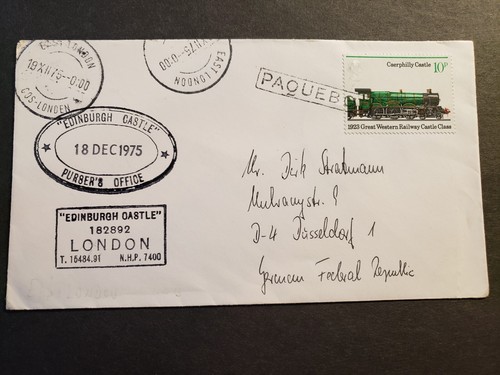 EAST LONDON
19 XII 75--0:00
OOS-LONDEN
XII 75--0:00
EAST LONDON
PAQUEB
Caerphilly Castle 10P
1923 Great Western Railway Castle Class
"EDINBURGH CASTLE"
18 DEC 1975
PURSER'S OFFICE
"EDINBURGH CASTLE"
182892
LONDON
T. 15484.91 N.H.P. 7400
Mr. Dirk Stratmann
D-4 Düsseldorf 1
German Federal Republic